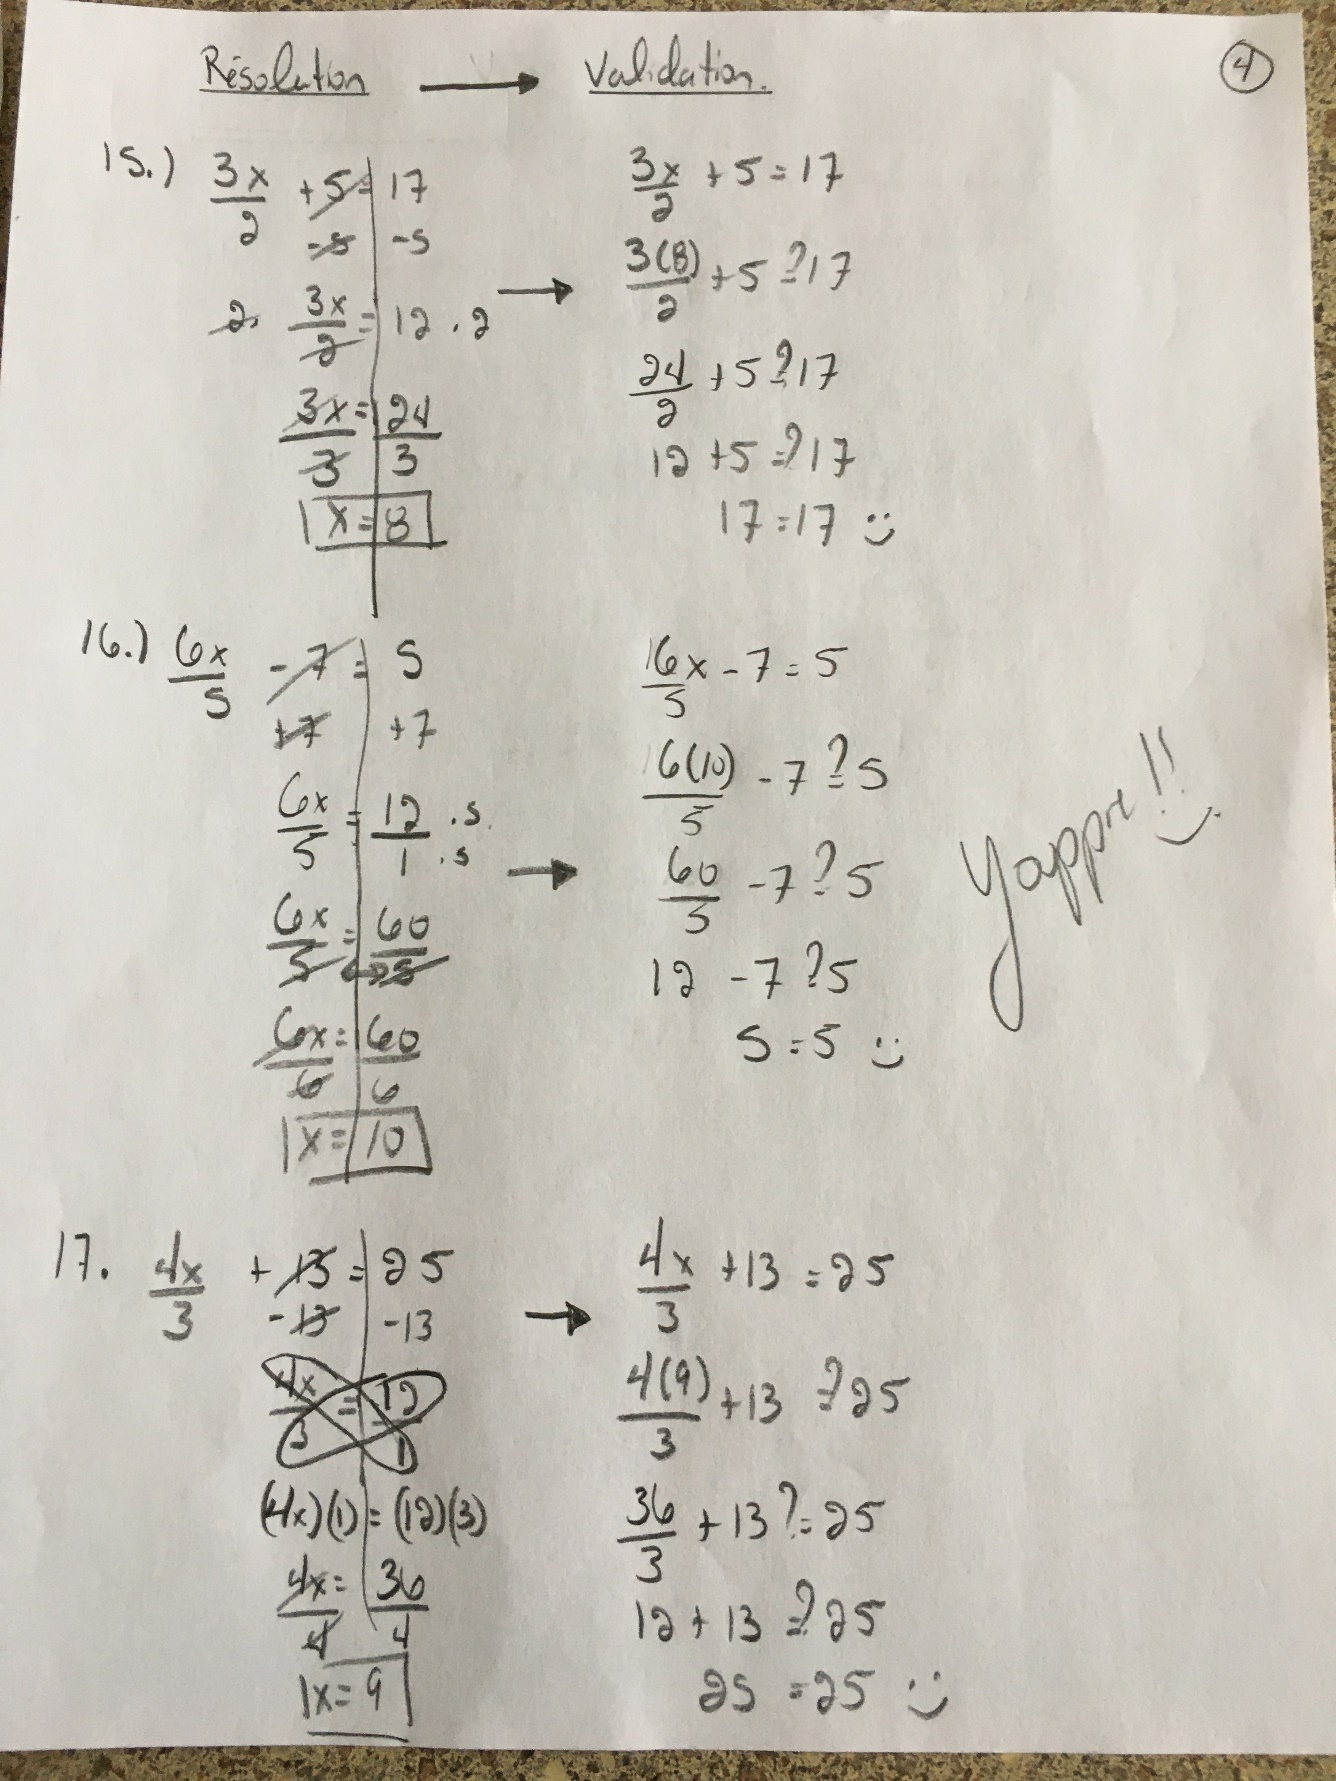 Résolution → Validation.
4
15.) 3x/2 + 5 = 17
-5 -5
2 · 3x/2 = 12 · 2
3x/3 = 24/3
x = 8
→
3x/2 + 5 = 17
3(8)/2 + 5 ?= 17
24/2 + 5 ?= 17
12 + 5 =? 17
17 = 17 :)
16.) 6x/5 - 7 = 5
+7 +7
6x/5 = 12/1 · 5 · 5
6x/5 = 60/5
6x/6 = 60/6
x = 10
→
6x/5 - 7 = 5
6(10)/5 - 7 ?= 5
60/5 - 7 ?= 5
12 - 7 ? 5
5 = 5 :)
17. 4x/3 + 13 = 25
-13 -13
4x/3 = 12/1
(4x)(1) = (12)(3)
4x/4 = 36/4
x = 9
→
4x/3 + 13 = 25
4(9)/3 + 13 ?= 25
36/3 + 13 ?= 25
12 + 13 ?= 25
25 = 25 :)